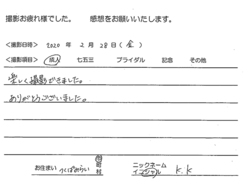 撮影お疲れ様でした。　感想をお願いいたします。
＜撮影日時＞ 2020 年 2 月 28 日（金）
＜撮影項目＞ 成人 七五三 ブライダル 記念 その他
楽しく撮影ができました。
ありがとうございました。
お住まい つくばみらい 市 町 村 ニックネーム イニシャル K.K